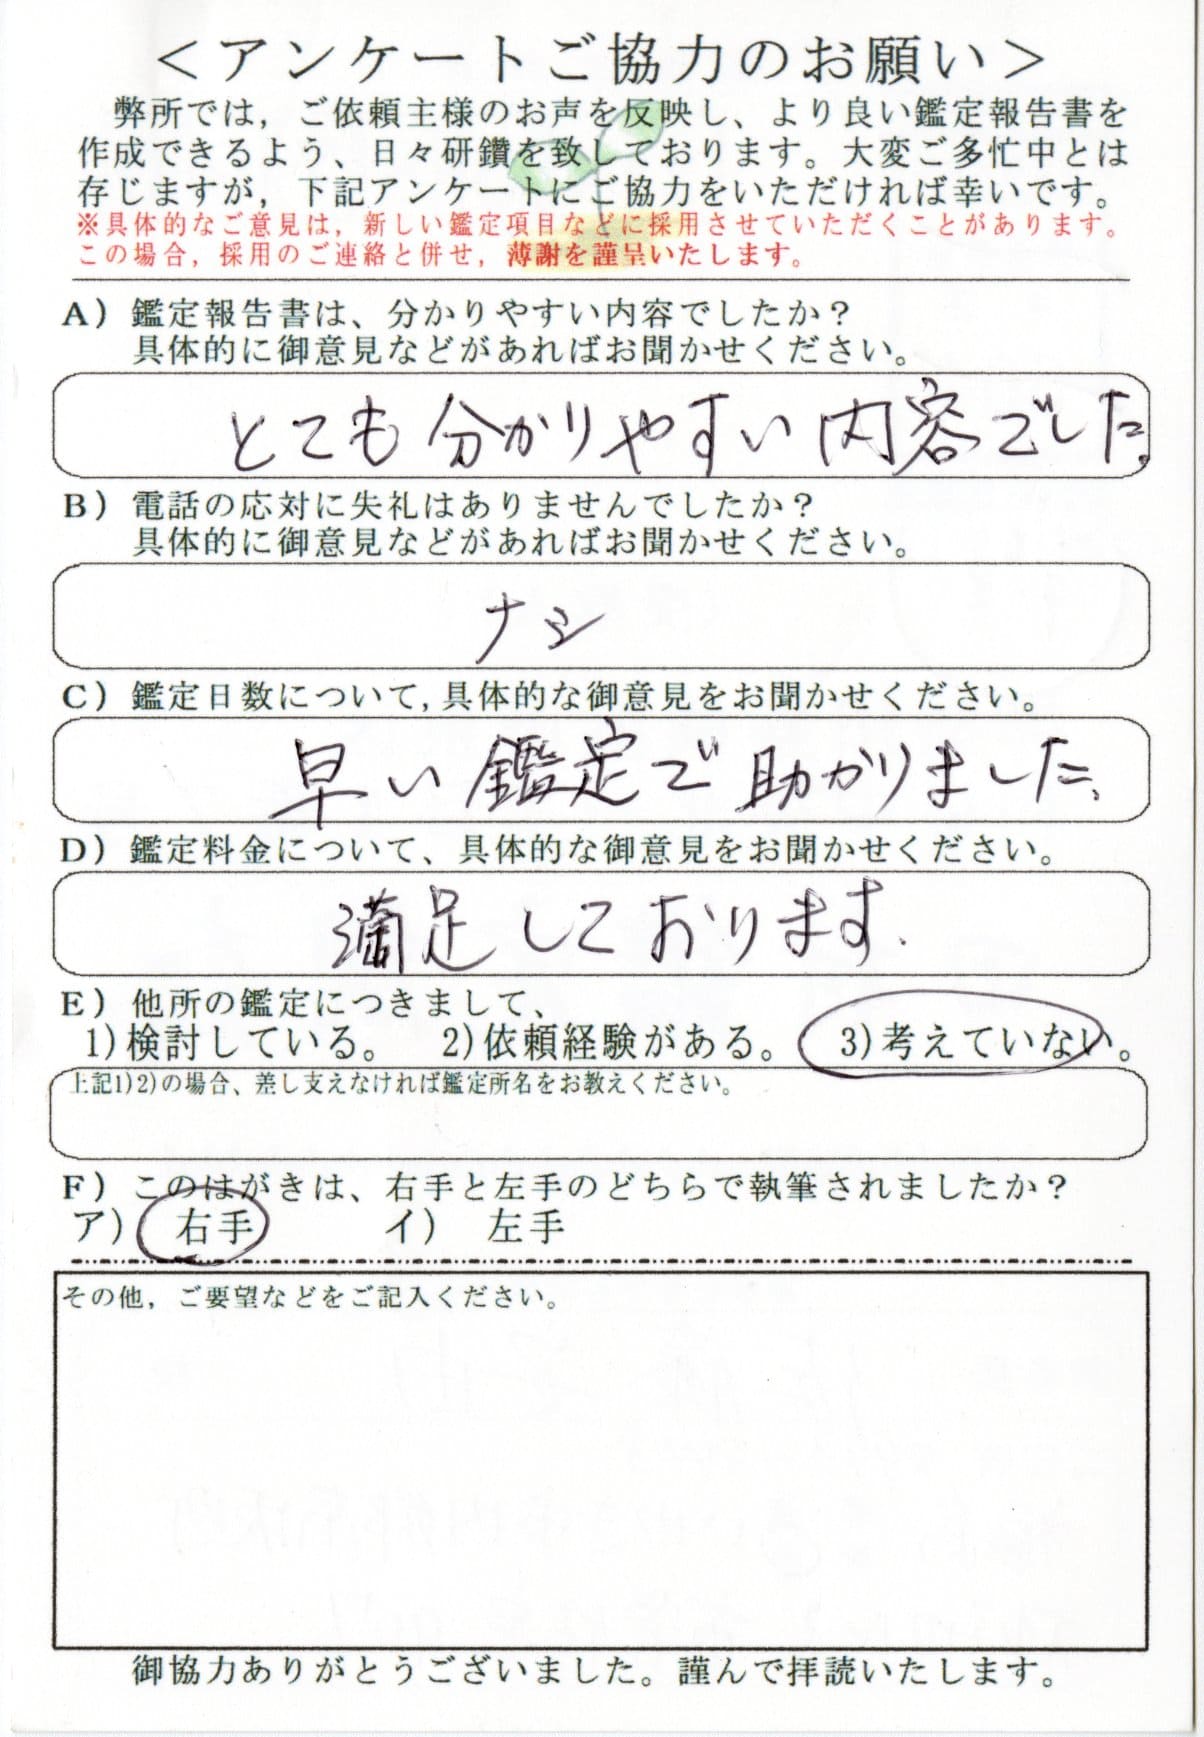 ＜アンケートご協力のお願い＞
弊所では，ご依頼主様のお声を反映し、より良い鑑定報告書を
作成できるよう、日々研鑽を致しております。大変ご多忙中とは
存じますが，下記アンケートにご協力をいただければ幸いです。
※具体的なご意見は，新しい鑑定項目などに採用させていただくことがあります。
この場合，採用のご連絡と併せ，薄謝を謹呈いたします。
A）鑑定報告書は、分かりやすい内容でしたか？
具体的に御意見などがあればお聞かせください。
とても分かりやすい内容でした。
B）電話の応対に失礼はありませんでしたか？
具体的に御意見などがあればお聞かせください。
ナシ
C）鑑定日数について,具体的な御意見をお聞かせください。
早い鑑定で助かりました。
D）鑑定料金について、具体的な御意見をお聞かせください。
満足しております.
E）他所の鑑定につきまして、
1)検討している。 2)依頼経験がある。 3)考えていない。
上記1)2)の場合、差し支えなければ鑑定所名をお教えください。
F）このはがきは、右手と左手のどちらで執筆されましたか？
ア） 右手 イ） 左手
その他，ご要望などをご記入ください。
御協力ありがとうございました。謹んで拝読いたします。